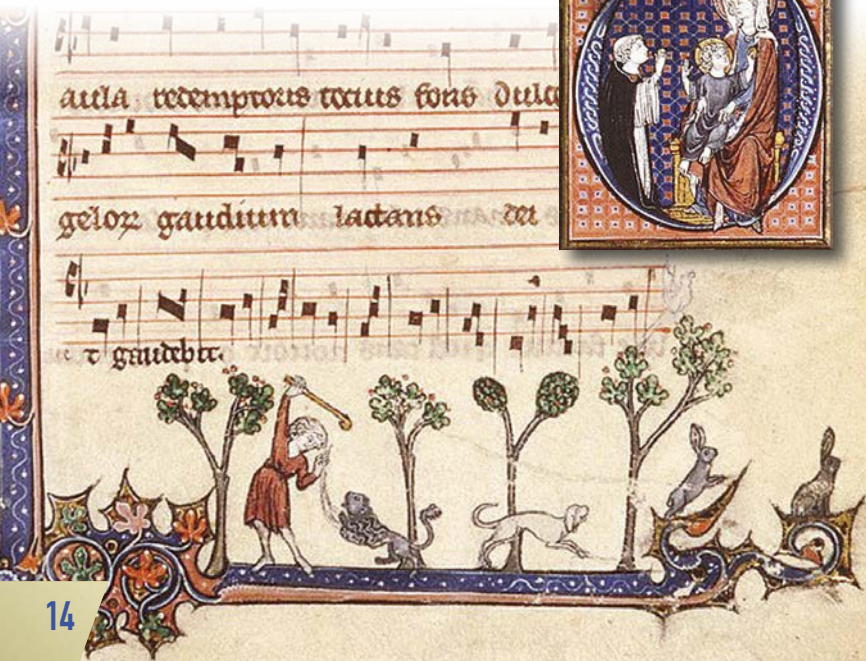 aula redemptoris tocius fons dulc
geloꝝ gaudium lactans dei
gaudebit.
14